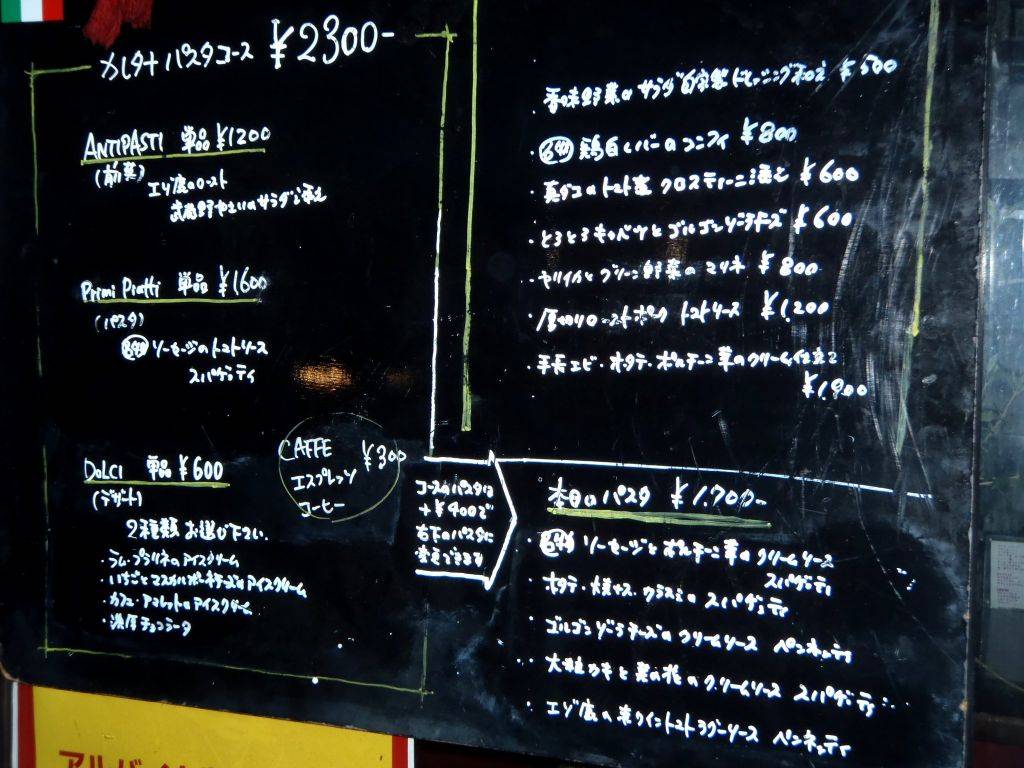 メレタナ パスタコース ¥2300-
ANTIPASTI 単品 ¥1200
(前菜)
エゾ鹿のロースト
武蔵野やさいのサラダ添え
Primi Piatti 単品 ¥1600
(パスタ)
ソーセージのトマトソース
スパゲッティ
DOLCI 単品 ¥600
(デザート)
2種類 お選び下さい.
・ラム・プラリネのアイスクリーム
・いちごとマスカルポーネチーズのアイスクリーム
・カフェ・アマレットのアイスクリーム
・濃厚チョコラータ
CAFFE ¥300
エスプレッソ
コーヒー
・香味野菜のサラダ 自家製ドレッシング和え ¥500
・鶏白レバーのコンフィ ¥800
・真ダコのトマト煮 クロスティーニ添え ¥600
・とろとろキャベツとゴルゴンゾーラチーズ ¥600
・ヤリイカとグリーン野菜のマリネ ¥800
・厚切りローストポーク トマトソース ¥1,200
・手長エビ・ホタテ・ポルチーニ茸のクリーム仕立て
¥1,800
コースのパスタは
+¥400で
右下のパスタに
変更できます
本日のパスタ ¥1,700-
・ソーセージとポルチーニ茸のクリームソース
スパゲッティ
・ホタテ・焼ナス・カラスミのスパゲッティ
・ゴルゴンゾーラチーズのクリームソース ペンネッティ
・大粒カキと菜の花のクリームソース スパゲッティ
・エゾ鹿の赤ワイントマトラグーソース ペンネッティ
アルバイト